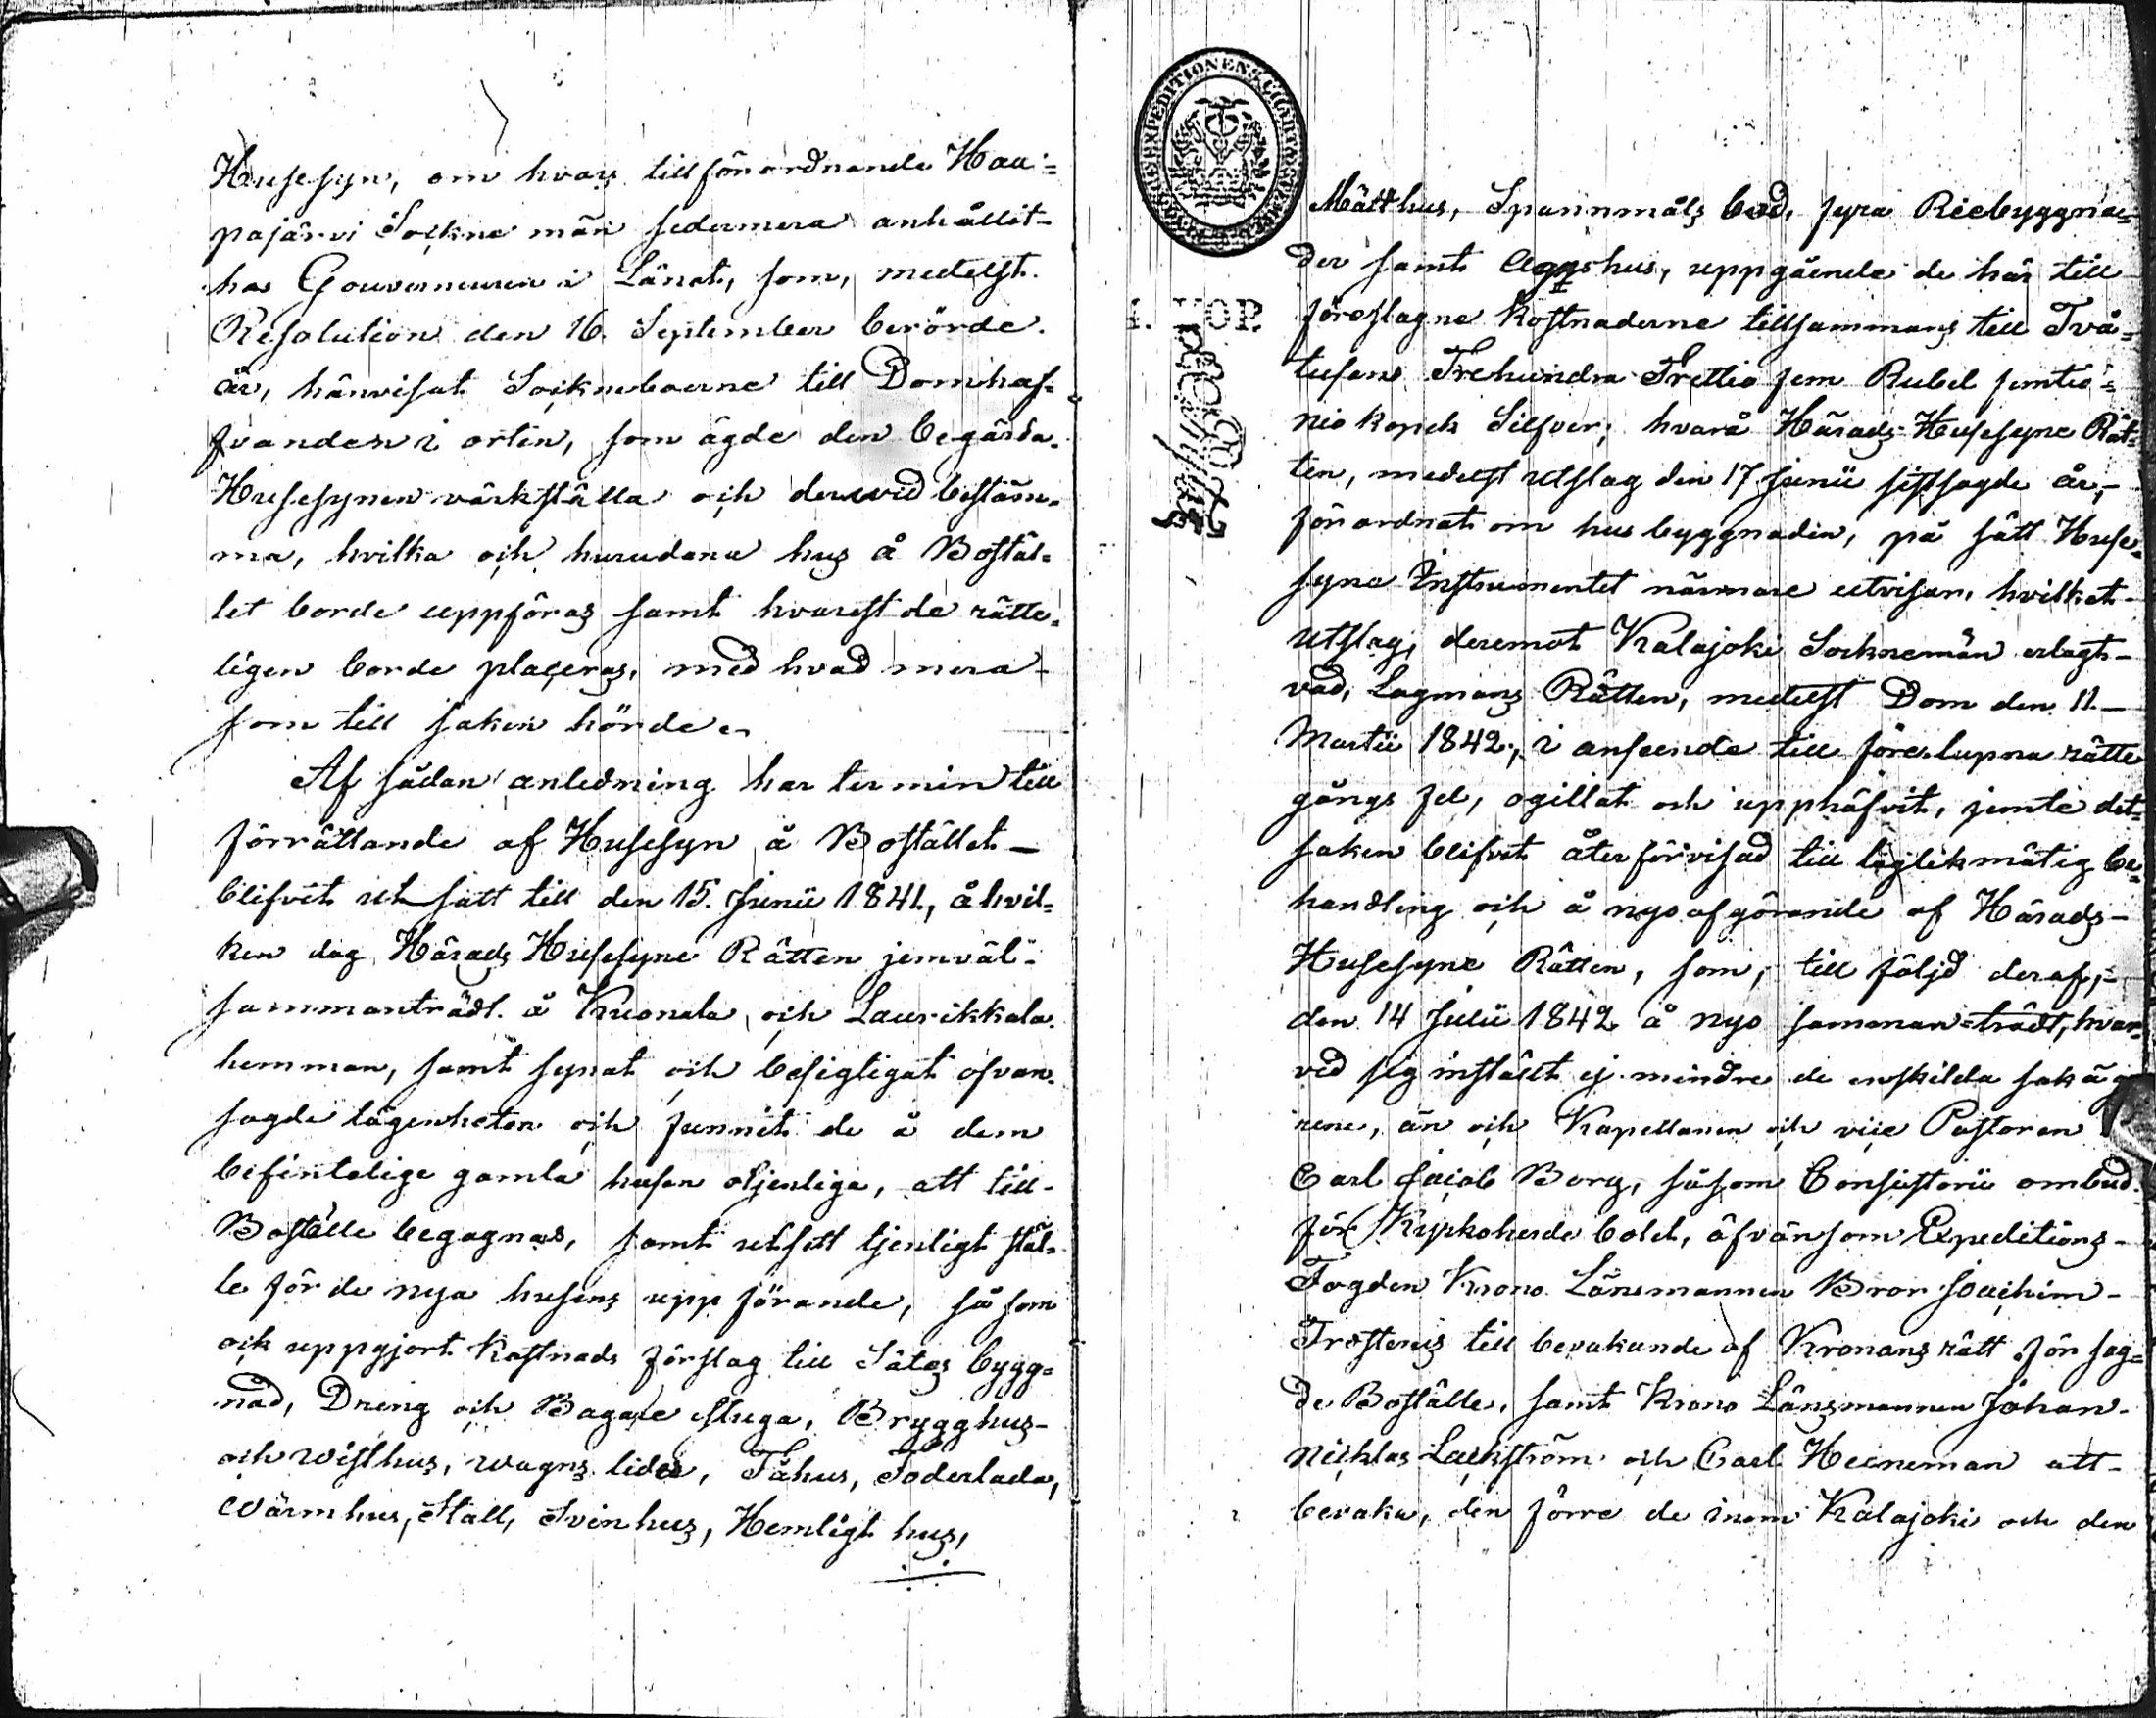 Husesyn, om hvars tillförordnande Haa=
pajärvi Sockne män sedermera anhållit
hos Gouverneuren i Länet, som, medelst
Resolution den 16. September berörde
år, hänvisat Sockneboerne till Domhaf=
vanden i orten, som ägde den begärda
Husesynen värkställa och dervid bestäm=
ma, hvilka och hurudana hus å Bostäl=
let borde uppföras samt hvarest de rätte=
ligen borde placeras, med hvad mera
som till saken hörde.
Af sådan anledning har termin till
förrättande af Husesyn å Bostället
blifvit utsatt till den 15. Junii 1841, å hvil=
ken dag Härads Husesyne Rätten jemväl
sammanträdt å Kuonala och Laurikkala
hemman, samt synat och besigtigat ofvan
sagde lägenheter och funnit de å dem
befintelige gamla husen otjenliga, att till
Boställe begagnas, samt utsett tjenligt stäl=
le för de nya husens uppförande, så som
ock uppgjort kostnads förslag till Sätes bygg=
nad, Dreng och Bagare stuga, Brygghus
och Visthus, Wagns lider, Fähus, Foderlada,
Wärmhus, Stall, Svinhus, Hemligt hus,
CHARTÆ
4. KOP.
Mälthus, Spannmåls bod, fyra Riebyggna=
der samt, uppgående de här till
föreslagne kostnaderne tillsammans till Två=
tusend Trehundra Trettio fem Rubel femtio=
nio kopek Silfver, hvarå Härads Husesyne Rät=
ten, medelst utslag den 17 Junii sistsagde år,
förordnat om hus byggnaden, på sätt Huse=
syns Instrumentet närmare utvisar, hvilket
utslag, deremot Kalajoki Socknemän erlagt
vad, Lagmans Rätten, medelst Dom den 11
Martii 1842, i anseende till förelupna rätte
gångs fel, ogillat och upphäfvit, jemte det
saken blifvit återförvisad till laglikmätig be=
handling och å nyo afgörande af Härads
Husesyne Rätten, som, till följd deraf,
den 14 Julii 1842 å nyo sammanträdt, hvar=
vid sig inställt ej mindre de enskilda sakäga
rene, än och Kapellanen och vice Pastoren
Carl Jacob Borg, såsom Consistorii ombud
för Kyrkoherde bolet, äfvensom Expeditions
Fogden Krono Länsmannen Bror Joachim
Frosterus till bevakande af Kronans rätt för sag=
de Boställe, samt Krono Länsmannen Johan
Nicklas Lackström och Carl Heineman att
bevaka, den förre de inom Kalajoki och den